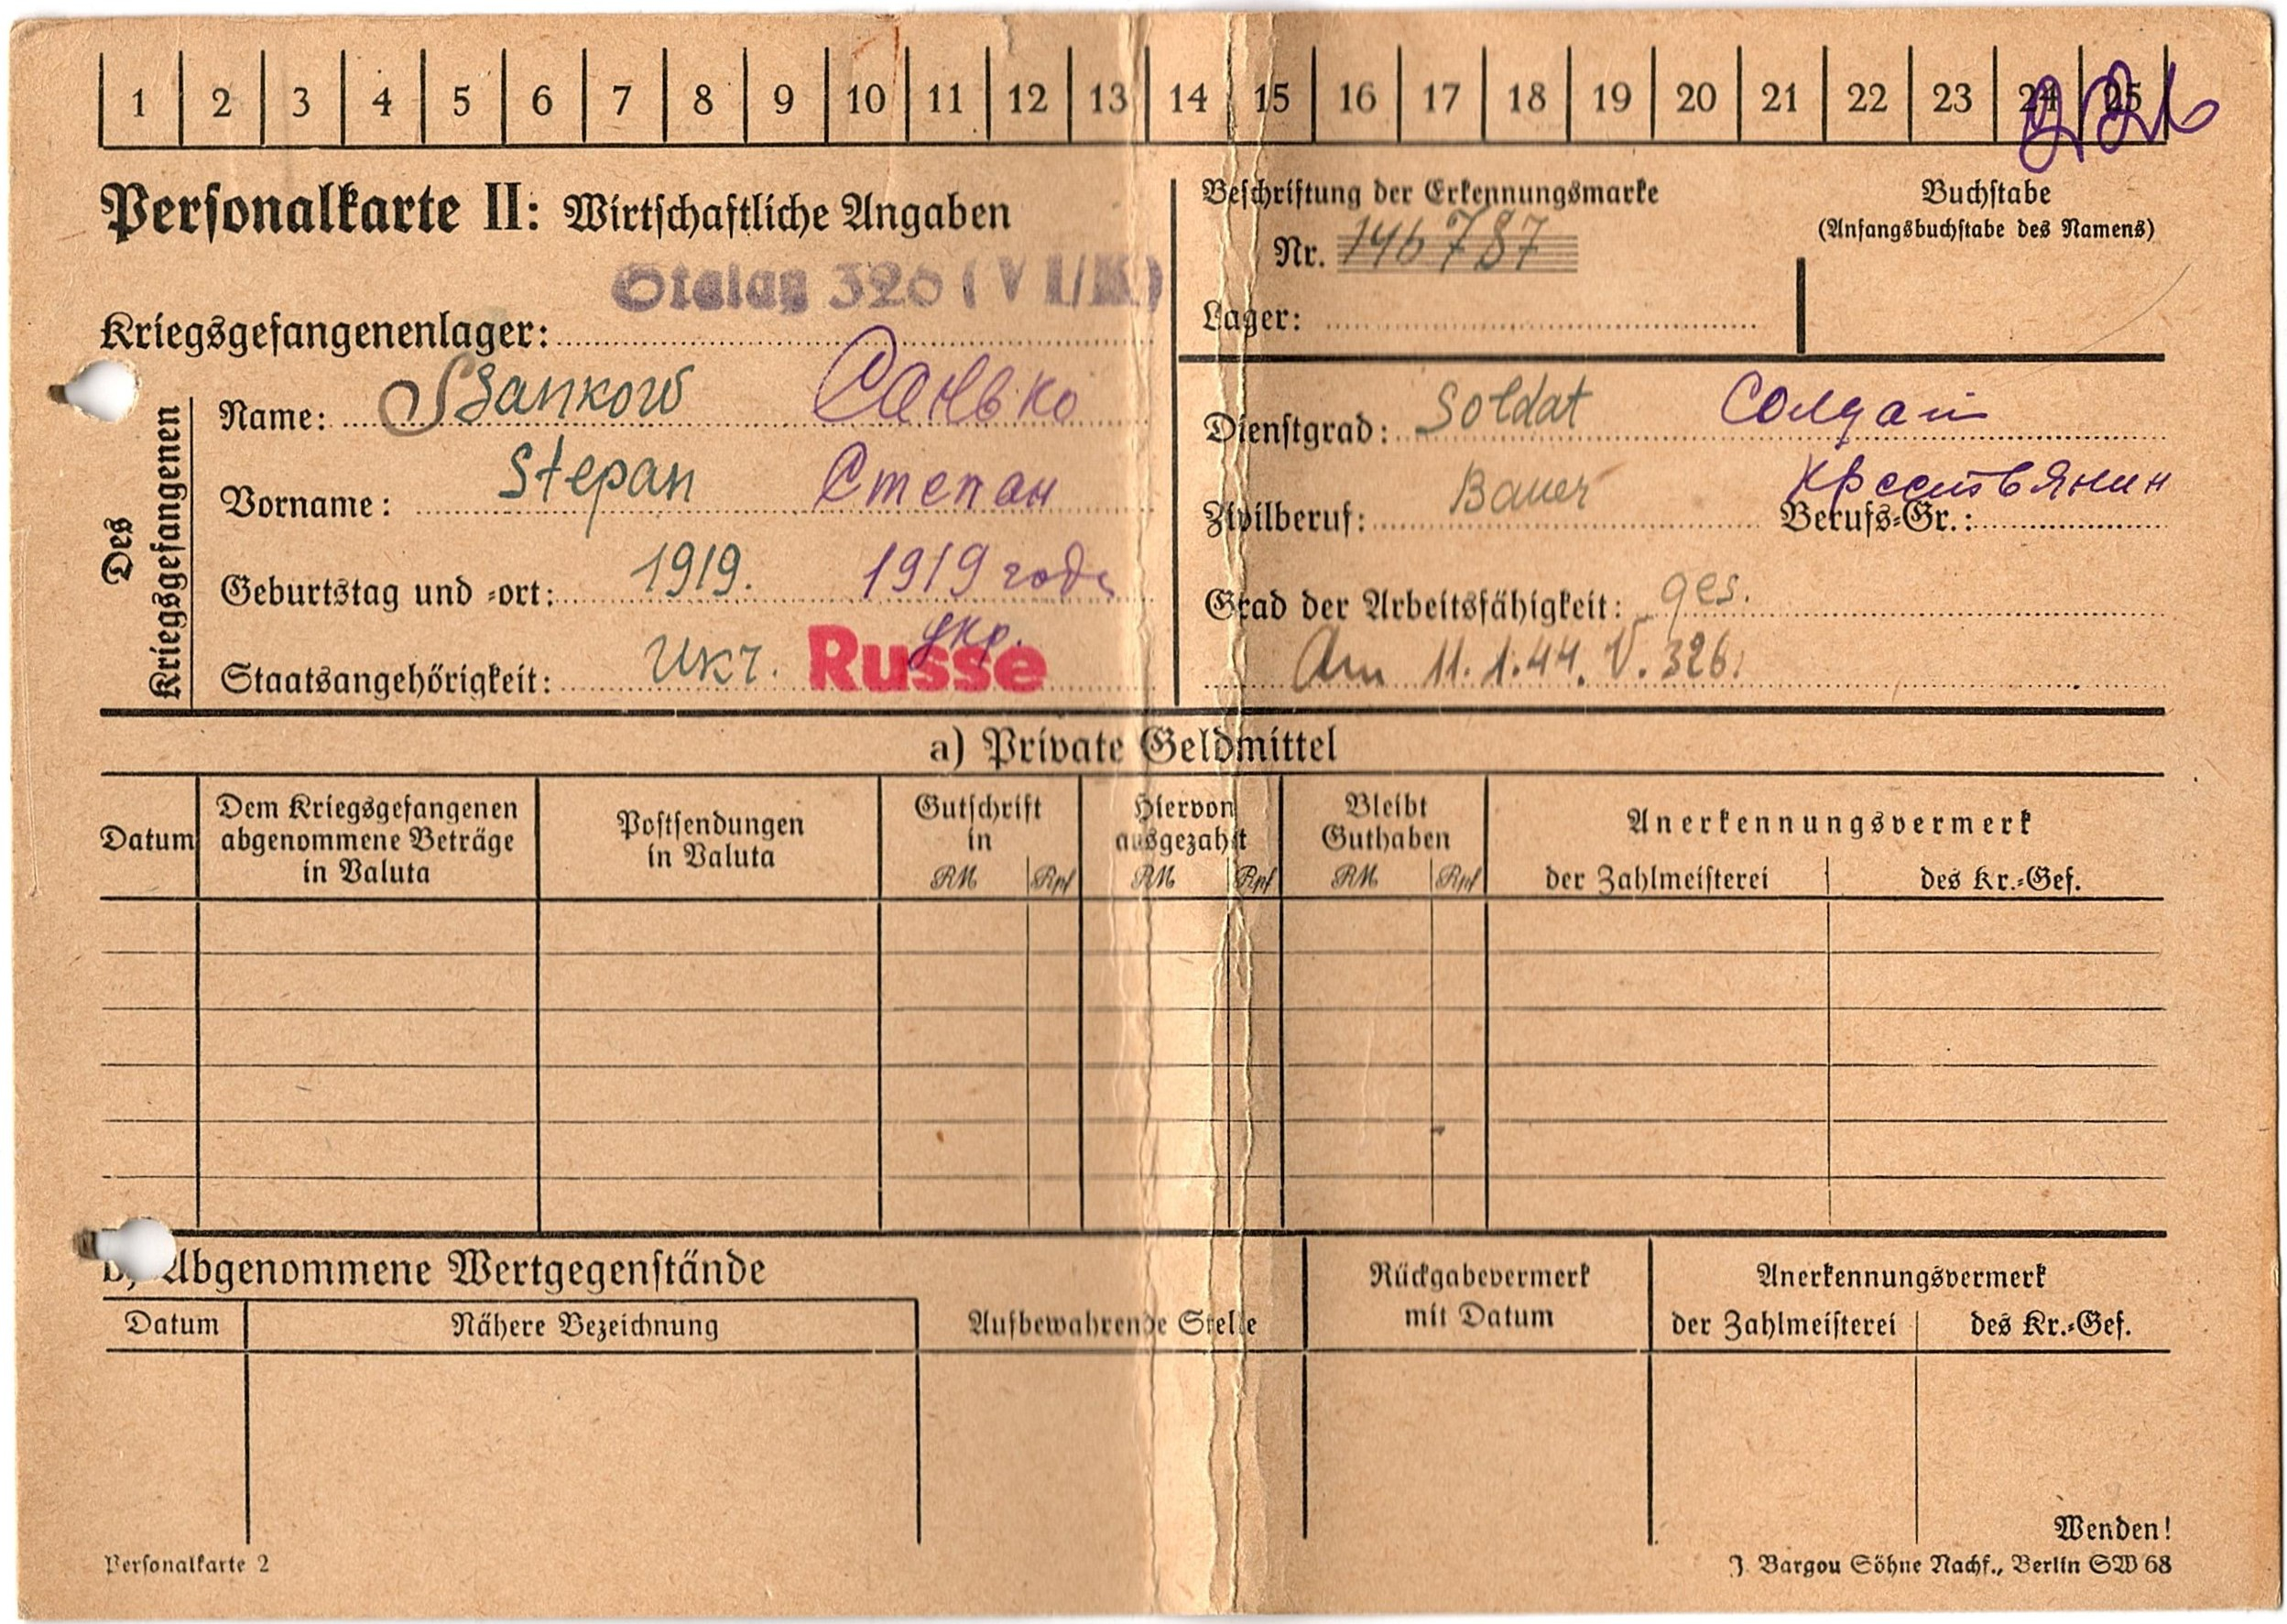 1 2 3 4 5 6 7 8 9 10 11 12 13 14 15 16 17 18 19 20 21 22 23 24 25
Personalkarte II: Wirtschaftliche Angaben
Stalag 326 (VI/K)
Kriegsgefangenenlager:
Des Kriegsgefangenen
Name: Szankow Санько
Vorname: Stepan Степан
Geburtstag und -ort: 1919. 1919 года
укр.
Staatsangehörigkeit: Ukr. Russe
Beschriftung der Erkennungsmarke
Nr. 146787
Lager:
Buchstabe
(Anfangsbuchstabe des Namens)
Dienstgrad: Soldat Солдат
Zivilberuf: Bauer крестьянин
Berufs-Gr.:
Grad der Arbeitsfähigkeit: ges.
Am 11.1.44. V. 326.
a) Private Geldmittel
Datum
Dem Kriegsgefangenen
abgenommene Beträge
in Valuta
Postsendungen
in Valuta
Gutschrift
in
RM Rpf
Hiervon
ausgezahlt
RM Rpf
Bleibt
Guthaben
RM Rpf
Anerkennungsvermerk
der Zahlmeisterei des Kr.-Gef.
b) Abgenommene Wertgegenstände
Datum Nähere Bezeichnung
Aufbewahrende Stelle
Rückgabevermerk
mit Datum
Anerkennungsvermerk
der Zahlmeisterei des Kr.-Gef.
Wenden!
Personalkarte 2
J. Bargou Söhne Nachf., Berlin SW 68